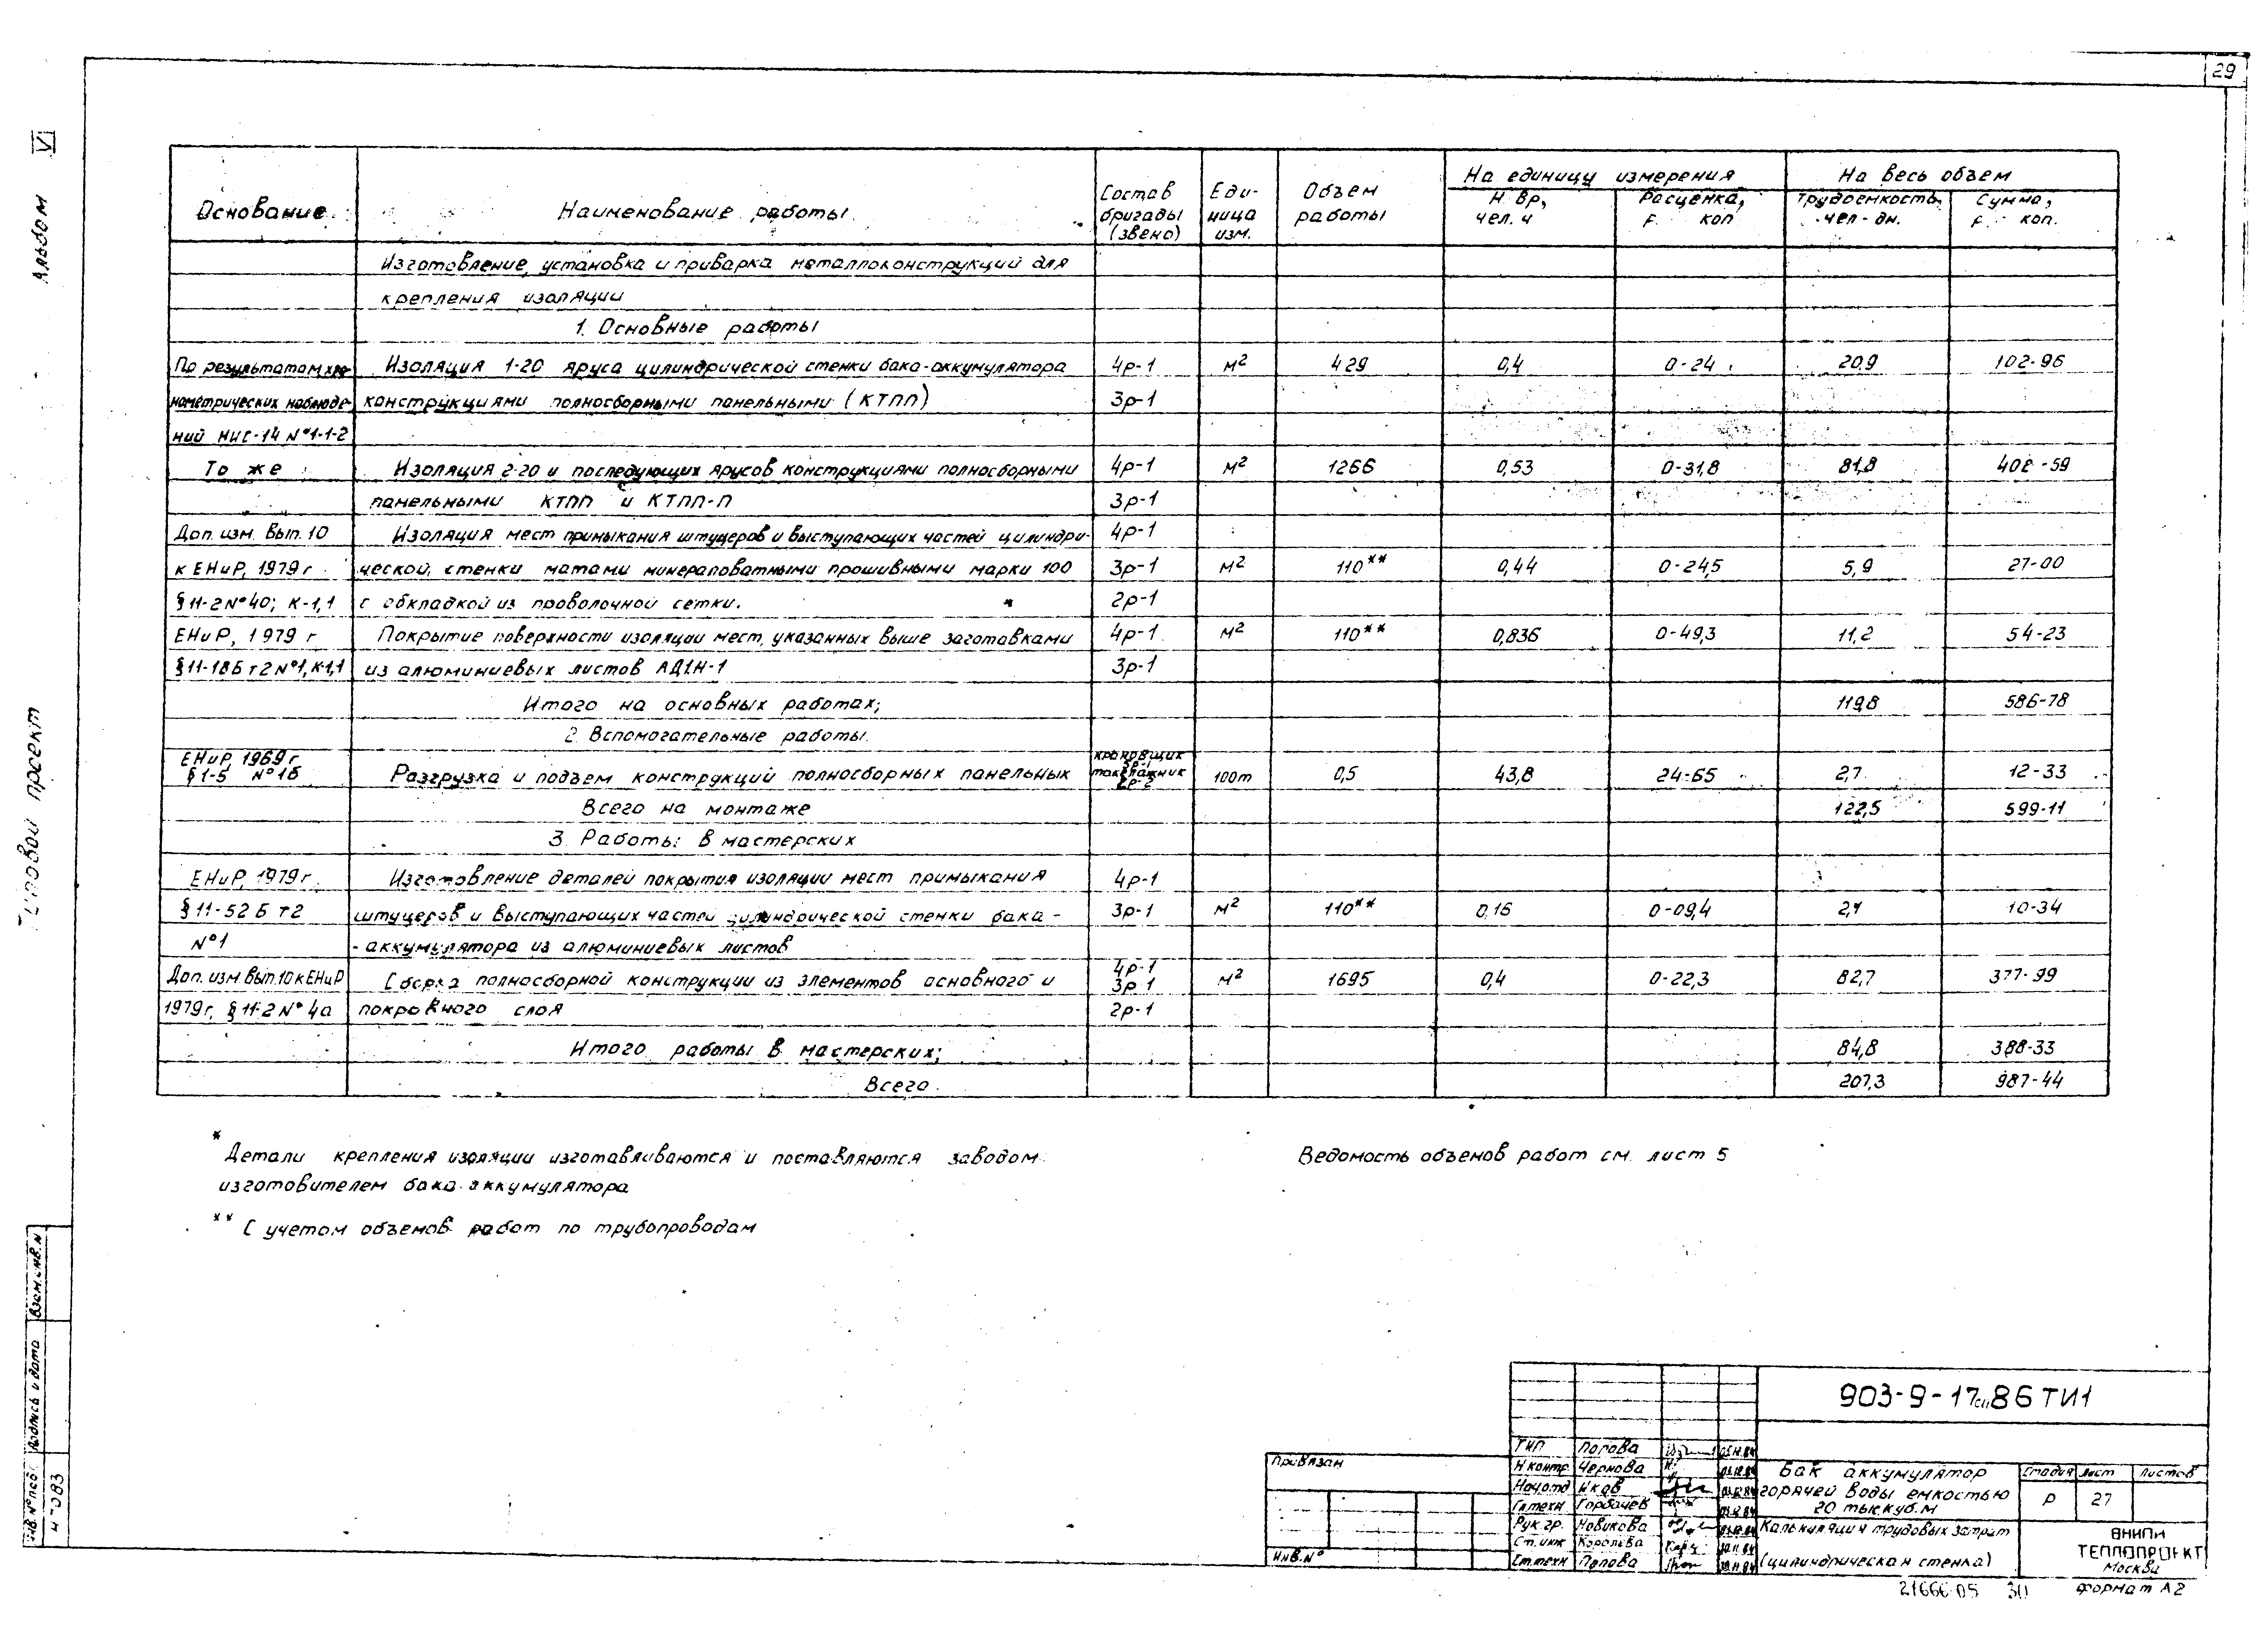 29
Альбом VI
Типовой проект
Основание
Наименование работы
Состав бригады (звено)
Еди-ница изм.
Объем работы
На единицу измерения
Н. вр, чел. ч
Расценка, р. коп
На весь объем
трудоемкость, чел-дн.
Сумма, р. коп.
Изготовление, установка и приварка металлоконструкций для
крепления изоляции
1. Основные работы
По результатам хро- Изоляция 1-20 яруса цилиндрической стенки бака-аккумулятора 4р-1 м² 429 0,4 0-24 20,9 102-96
нометрических наблюде- конструкциями полносборными панельными (КТПП) 3р-1
ний НИС-14 №1-1-2
То же Изоляция 2-20 и последующих ярусов конструкциями полносборными 4р-1 м² 1266 0,53 0-31,8 81,8 402-59
панельными КТПП и КТПП-П 3р-1
Доп. изм. вып. 10 Изоляция мест примыкания штуцеров и выступающих частей цилиндри- 4р-1
к ЕНиР, 1979 г. ческой, стенки матами минераловатными прошивными марки 100 3р-1 м² 110** 0,44 0-24,5 5,9 27-00
§11-2 №40; К-1,1 с обкладкой из проволочной сетки. 2р-1
ЕНиР, 1979 г Покрытие поверхности изоляции мест, указанных выше заготовками 4р-1 м² 110** 0,836 0-49,3 11,2 54-23
§11-18Б т2 №1, К-1,1 из алюминиевых листов АД1Н-1 3р-1
Итого на основных работах; 119,8 586-78
2. Вспомогательные работы.
ЕНиР, 1969 г. §1-5 №1б Разгрузка и подъем конструкций полносборных панельных крановщик 5р-1 такелажник 2р-2 100т 0,5 43,8 24-65 2,7 12-33
Всего на монтаже 122,5 599-11
3. Работы в мастерских
ЕНиР, 1979 г. Изготовление деталей покрытия изоляции мест примыкания 4р-1
§11-52 Б т2 штуцеров и выступающих частей цилиндрической стенки бака- 3р-1 м² 110** 0,16 0-09,4 2,1 10-34
№1 -аккумулятора из алюминиевых листов
Доп. изм. вып. 10 к ЕНиР Сборка полносборной конструкции из элементов основного и 4р-1 3р-1 м² 1695 0,4 0-22,3 82,7 377-99
1979г, §11-2 № 4а покровного слоя 2р-1
Итого работы в мастерских; 84,8 388-33
Всего. 207,3 987-44
* Детали крепления изоляции изготавливаются и поставляются заводом
изготовителем бака аккумулятора
** С учетом объемов работ по трубопроводам
Ведомость объемов работ см. лист 5
Взам. инв. №
Подпись и дата
Инв. № подл.
903-9-17сп86 ТИ1
Привязан
Инв. №
ГИП Попова
Н контр. Чернова
Нач. отд
Гл. техн Горбачев
Рук. гр. Новикова
Ст. инж Королева
Ст. техн Попова
Бак аккумулятор
горячей воды емкостью
20 тыс. куб. м
Калькуляция трудовых затрат
(цилиндрическая стенка)
Стадия Лист Листов
Р 27
ВНИПИ
ТЕПЛОПРОЕКТ
Москва
21666-05 30
Формат А2